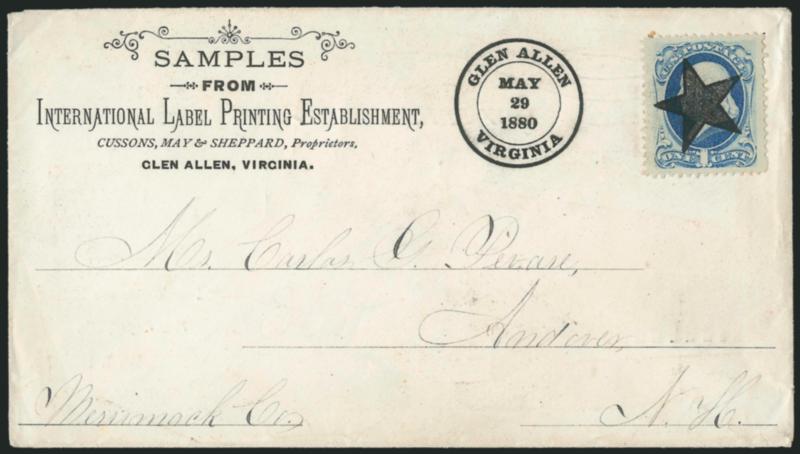 SAMPLES
FROM
INTERNATIONAL LABEL PRINTING ESTABLISHMENT,
CUSSONS, MAY & SHEPPARD, Proprietors,
GLEN ALLEN, VIRGINIA.
GLEN ALLEN
MAY
29
1880
VIRGINIA
U.S. POSTAGE
ONE 1 CENT
Mr. Carlos G. Pevare,
Andover,
Merrimack Co.
N. H.